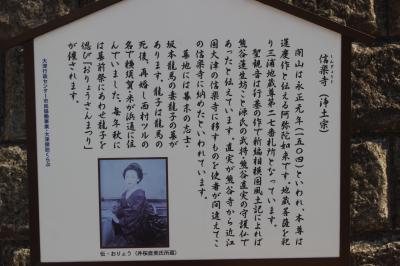 信楽寺(浄土宗)
しんぎょうじ
開山は永正元年(一五〇四)といわれ、本尊は
運慶作と伝える阿弥陀如来です。地蔵菩薩を祀
り三浦地蔵尊第二七番札所となっています。
聖観音は行基の作で新編相模国風土記によれば
熊谷蓮生坊こと源氏の武将・熊谷直実の守護仏で
あったと伝えています。直実が熊谷寺から近江
国大津の信楽寺に移すものを使者が間違えてこ
の信楽寺に納めたといわれています。
墓地には幕末の志士・
坂本龍馬の妻龍子の墓が
あります。龍子は龍馬の
死後、再婚し西村ツルの
名で横須賀米が浜通に住
んでいました。毎年秋に
は墓前祭にあわせ龍子を
偲び「おりょうさんまつり」
が催されます。
大津行政センター市民協働事業・大津探訪くらぶ
伝・おりょう(井桜直美氏所蔵)